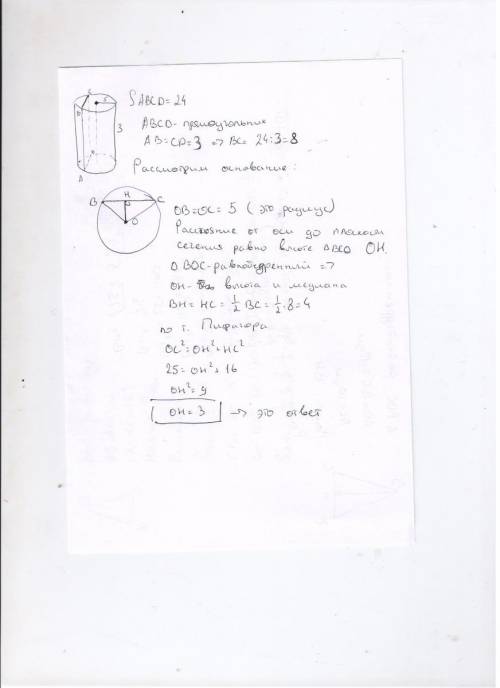 SABCD = 24
ABCD - прямоугольник
AB = CD = 3 => BC = 24:3 = 8
3
Рассмотрим основание:
B H C
O
OB = OC = 5 (это радиус)
Расстояние от оси до плоскости
сечения равно высоте ΔBCO OH.
Δ BOC - равнобедренный =>
OH - высота и медиана
BH = HC = 1/2 BC = 1/2 · 8 = 4
по т. Пифагора
OC² = OH² + HC²
25 = OH² + 16
OH² = 9
OH = 3 → это ответ